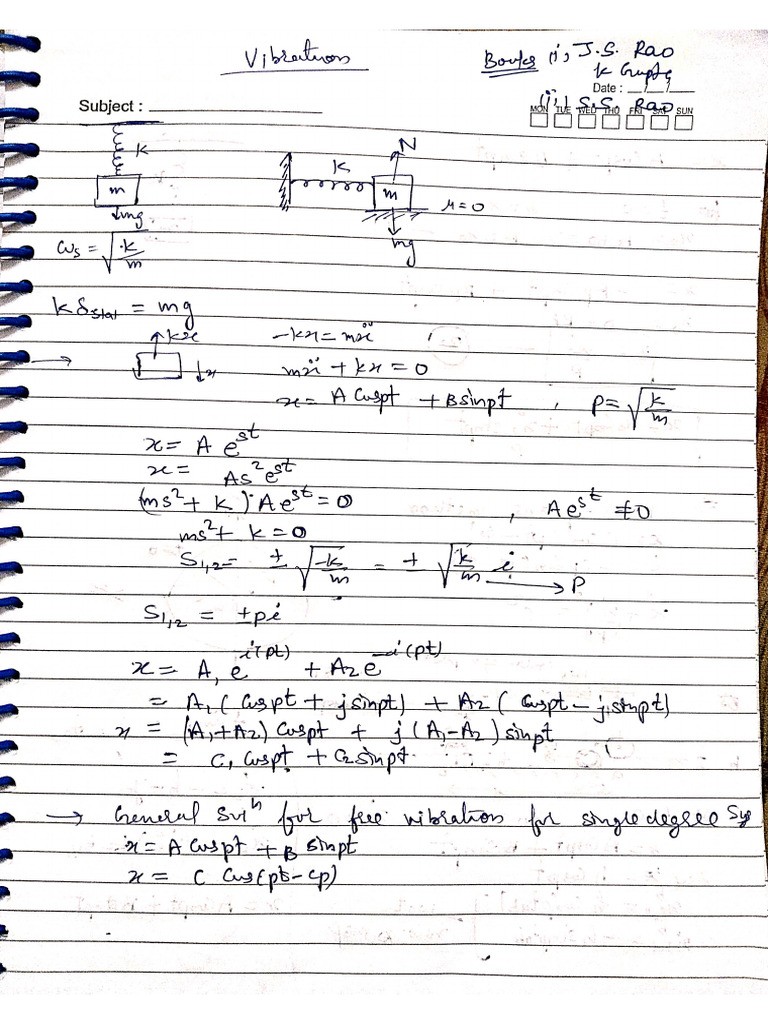 Vibrations
Books (i) J.S. Rao
K Gupta
Date : __/__/__
(ii) S.S. Rao
Subject :
MON TUE WED THU FRI SAT SUN
K
m
mg
K
m
N
μ=0
mg
ωs = √(k/m)
k δstat = mg
kx
-kx = mẍ
→ x
mẍ + kx = 0
x = A cospt + B sinpt , P = √(k/m)
x = A e^st
x = As²e^st
(ms² + k) · A e^st = 0 , A e^st ≠ 0
ms² + k = 0
S1,2 = ± √(-k/m) = ± √(k/m) i → P
S1,2 = ± pi
x = A1 e^i(pt) + A2 e^-i(pt)
= A1 ( cospt + j sinpt) + A2 ( cospt - j sinpt)
x = (A1+A2) cospt + j (A1-A2) sinpt
= C1 cospt + C2 sinpt
→ General Sol^n for free vibration for single degree Sys
x = A cospt + B sinpt
x = C Cos(pt - φ)